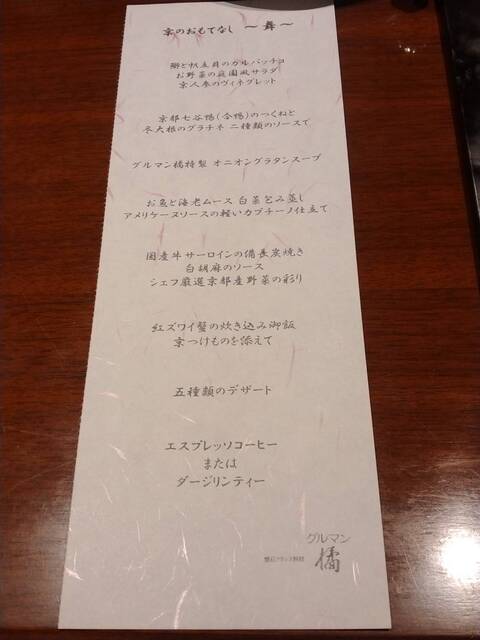 京のおもてなし ～舞～
鰤と帆立貝のカルパッチョ
お野菜の庭園風サラダ
京人参のヴィネグレット
京都七谷鴨（合鴨）のつくねと
冬大根のグラチネ 二種類のソースで
グルマン橘特製 オニオングラタンスープ
お魚と海老ムース 白菜包み蒸し
アメリケーヌソースの軽いカプチーノ仕立て
国産牛サーロインの備長炭焼き
白胡麻のソース
シェフ厳選京都産野菜の彩り
紅ズワイ蟹の炊き込み御飯
京つけものを添えて
五種類のデザート
エスプレッソコーヒー
または
ダージリンティー
グルマン
懐石フランス料理 橘